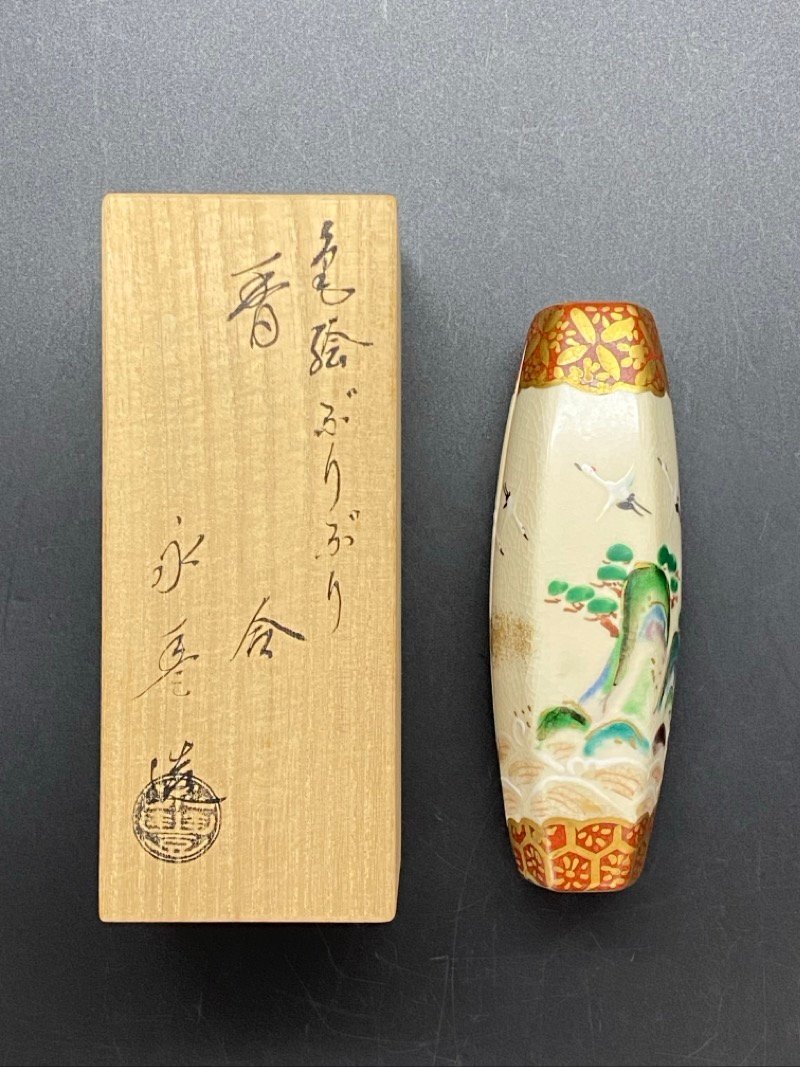 色絵ぶりぶり
香合
永 造